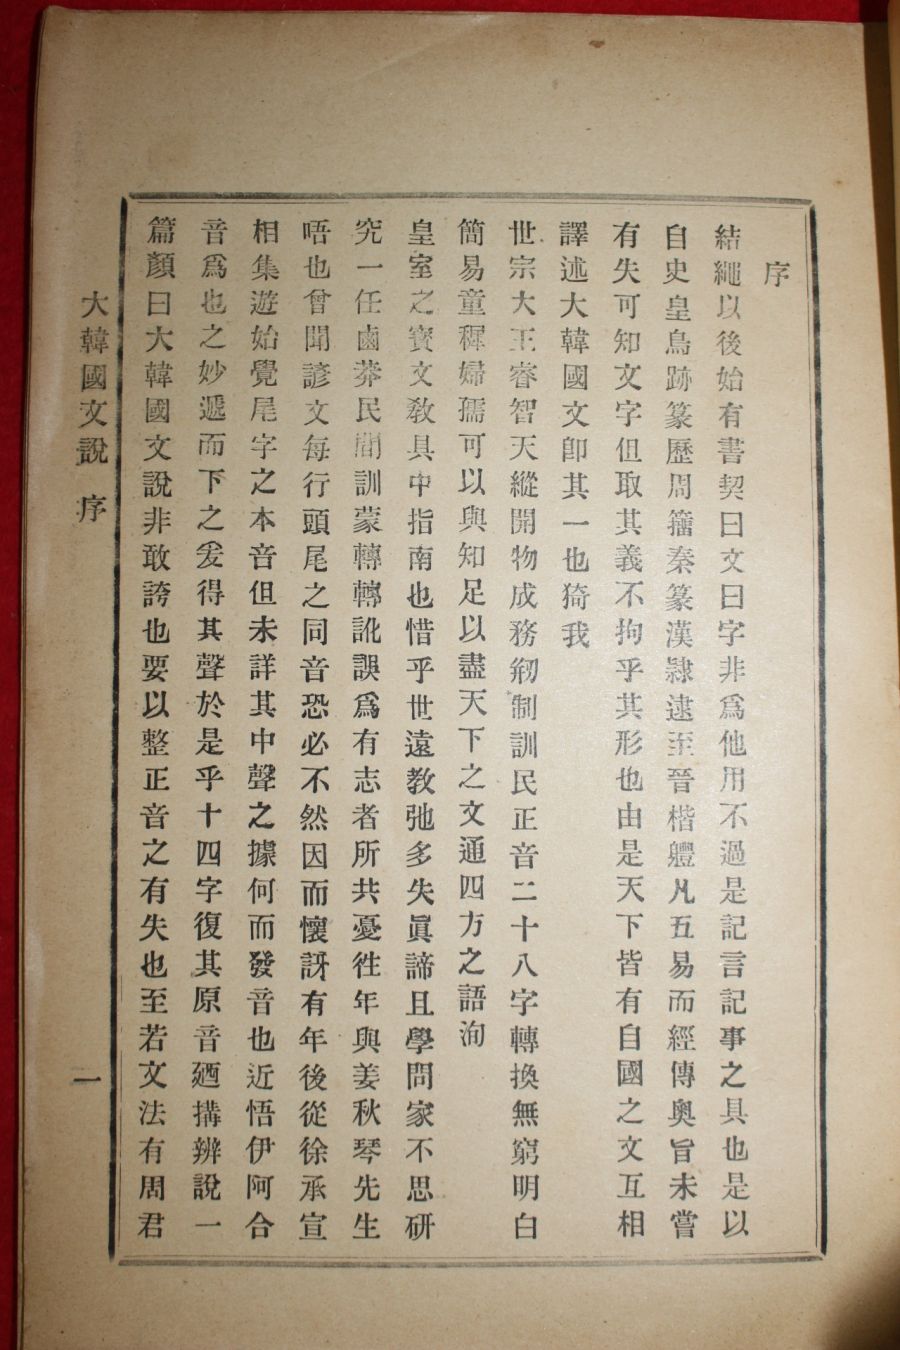 序
結繩以後始有書契曰文曰字非爲他用不過是記言記事之具也是以
自史皇鳥跡篆歷周籒秦篆漢隸逮至晉楷軆凡五易而經傳奧旨未嘗
有失可知文字但取其義不拘乎其形也由是天下皆有自國之文互相
譯述大韓國文卽其一也猗我
世宗大王睿智天縱開物成務剏制訓民正音二十八字轉換無窮明白
簡易童穉婦孺可以與知足以盡天下之文通四方之語洵
皇室之寶文敎具中指南也惜乎世遠敎弛多失眞諦且學問家不思硏
究一任鹵莽民間訓蒙轉轉訛誤爲有志者所共憂徃年與姜秋琴先生
唔也曾聞諺文每行頭尾之同音恐必不然因而懷訝有年後從徐承宣
相集遊始覺尾字之本音但未詳其中聲之據何而發音也近悟伊阿合
音爲也之妙遞而下之爰得其聲於是乎十四字復其原音廼搆辨說一
篇顏曰大韓國文說非敢誇也要以整正音之有失也至若文法有周君
大韓國文說 序
一